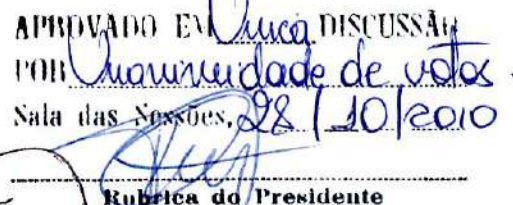 APROVADO EM Única DISCUSSÃO
POR Unanimidade de votos.
Sala das Sessões, 28/10/2010
Rubrica do Presidente